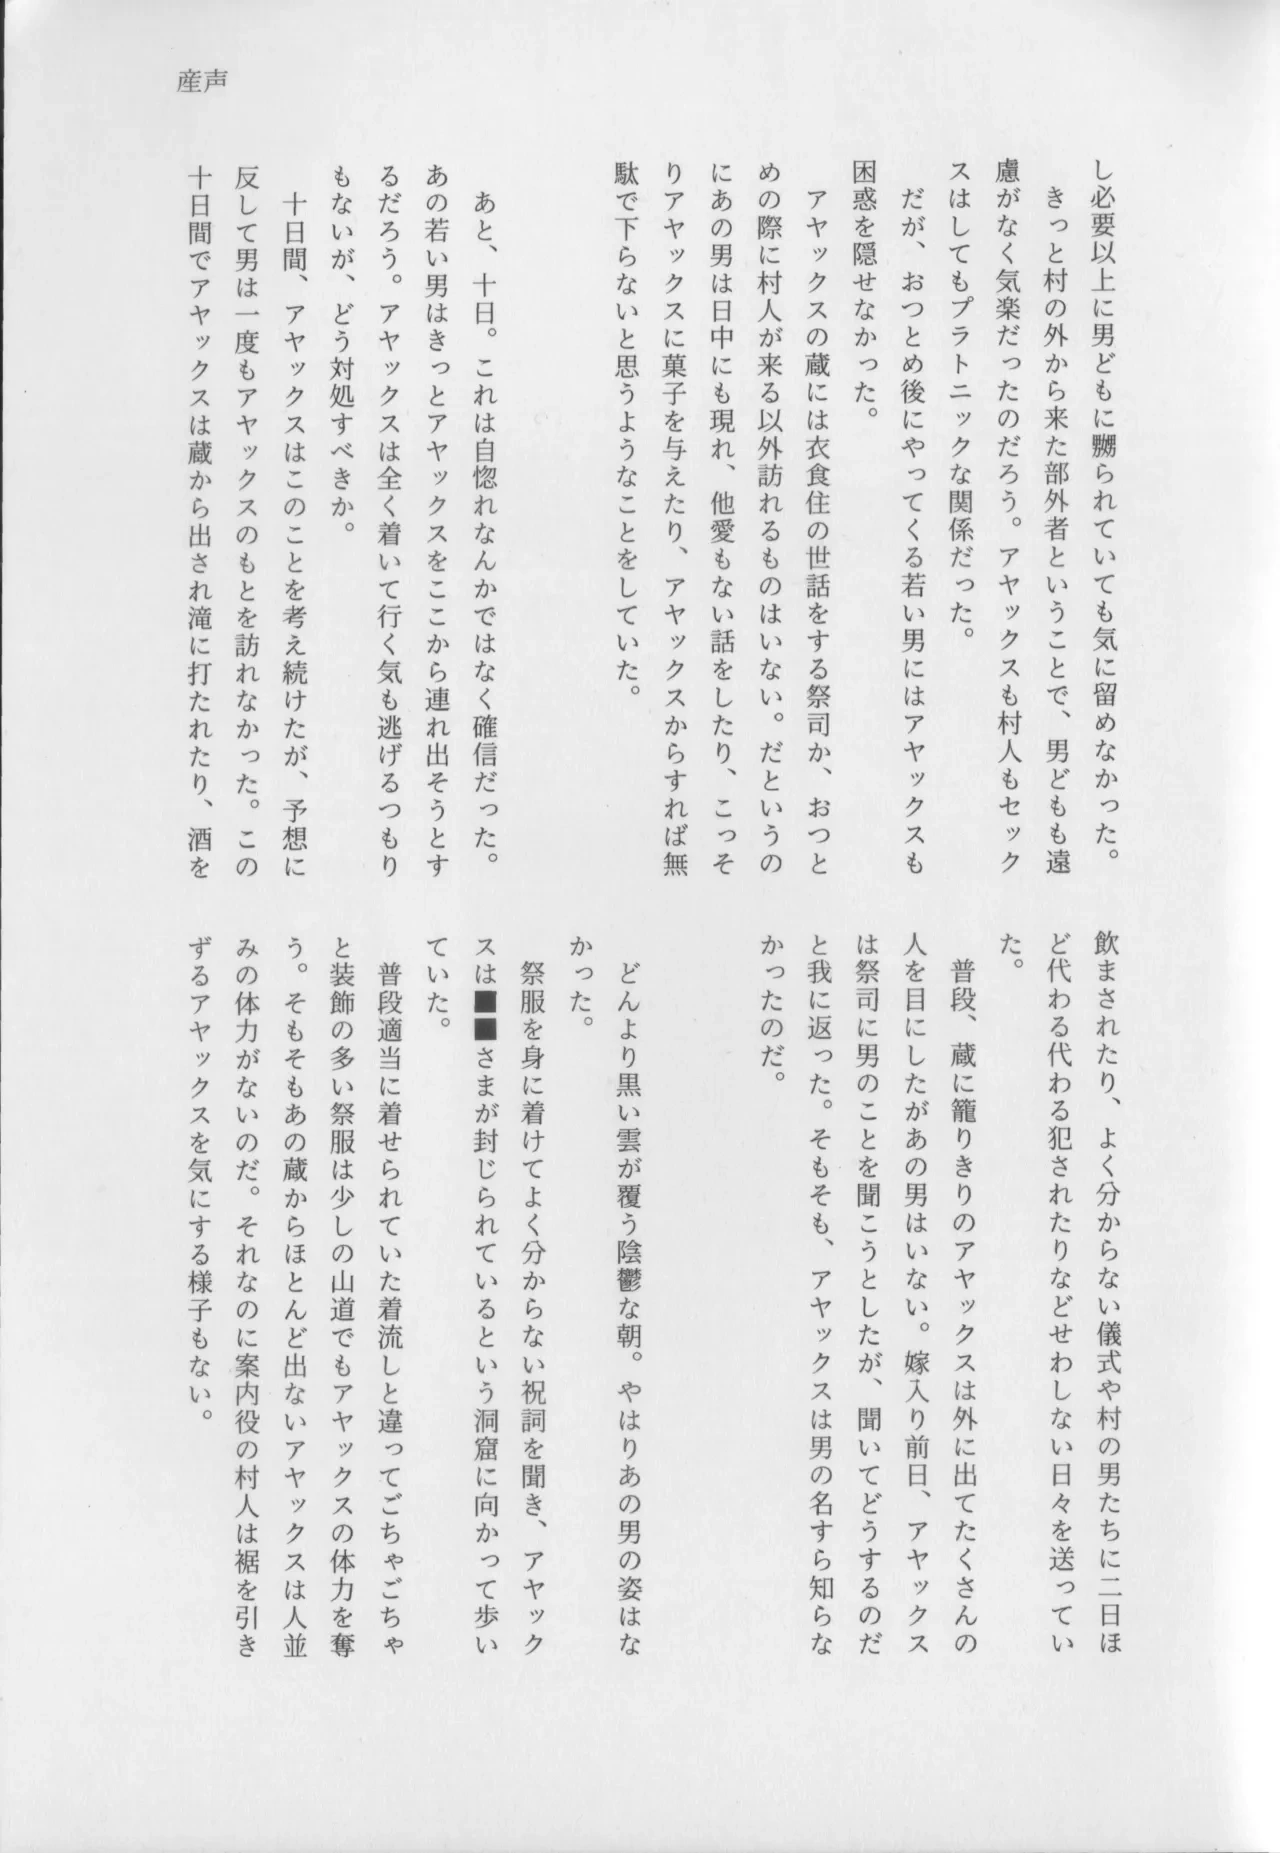 産声
し必要以上に男どもに嬲られていても気に留めなかった。
きっと村の外から来た部外者ということで、男どもも遠
慮がなく気楽だったのだろう。アヤックスも村人もセック
スはしてもプラトニックな関係だった。
だが、おつとめ後にやってくる若い男にはアヤックスも
困惑を隠せなかった。
アヤックスの蔵には衣食住の世話をする祭司か、おつと
めの際に村人が来る以外訪れるものはいない。だというの
にあの男は日中にも現れ、他愛もない話をしたり、こっそ
りアヤックスに菓子を与えたり、アヤックスからすれば無
駄で下らないと思うようなことをしていた。
あと、十日。これは自惚れなんかではなく確信だった。
あの若い男はきっとアヤックスをここから連れ出そうとす
るだろう。アヤックスは全く着いて行く気も逃げるつもり
もないが、どう対処すべきか。
十日間、アヤックスはこのことを考え続けたが、予想に
反して男は一度もアヤックスのもとを訪れなかった。この
十日間でアヤックスは蔵から出され滝に打たれたり、酒を
飲まされたり、よく分からない儀式や村の男たちに二日ほ
ど代わる代わる犯されたりなどせわしない日々を送ってい
た。
普段、蔵に籠りきりのアヤックスは外に出てたくさんの
人を目にしたがあの男はいない。嫁入り前日、アヤックス
は祭司に男のことを聞こうとしたが、聞いてどうするのだ
と我に返った。そもそも、アヤックスは男の名すら知らな
かったのだ。
どんより黒い雲が覆う陰鬱な朝。やはりあの男の姿はな
かった。
祭服を身に着けてよく分からない祝詞を聞き、アヤック
スは■■さまが封じられているという洞窟に向かって歩い
ていた。
普段適当に着せられていた着流しと違ってごちゃごちゃ
と装飾の多い祭服は少しの山道でもアヤックスの体力を奪
う。そもそもあの蔵からほとんど出ないアヤックスは人並
みの体力がないのだ。それなのに案内役の村人は裾を引き
ずるアヤックスを気にする様子もない。